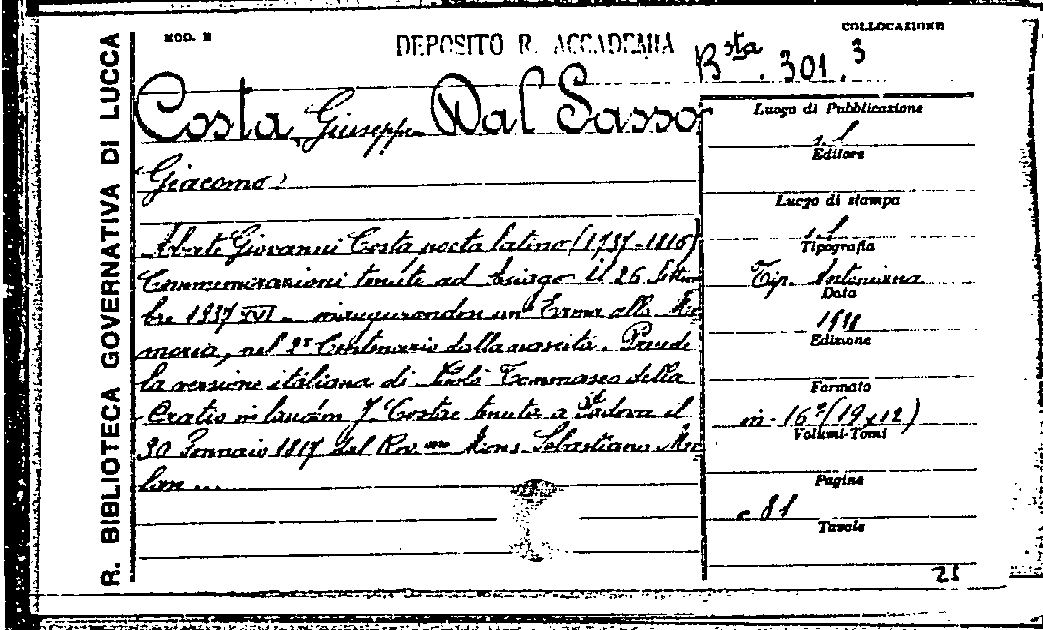 MOD. B
DEPOSITO R. ACCADEMIA
COLLOCAZIONE
B.sta . 301 . 3
R. BIBLIOTECA GOVERNATIVA DI LUCCA
Costa, Giuseppe Dal Sasso
Giacomo:
Abate Giovanni Costa poeta latino (1737-1816)
Commemorazioni tenute ad Asiago il 26 Settem
bre 1937 XVI - inaugurandon un' Erma alla Me
moria, nel 2° Centenario dalla nascita. Prende
la versione italiana di Nicolò Tommaseo della
Oratio in laudem J. Costae tenuta a Padova il
30 Gennaio 1817 dal Rev.mo Mons. Sebastiano Me
lan ...
Luogo di Pubblicazione
s. l.
Editore
Luogo di stampa
s. l.
Tipografia
Tip. Antoniana
Data
1938
Edizione
Formato
in-16° (19x12)
Volumi-Tomi
Pagine
81
Tavole
25